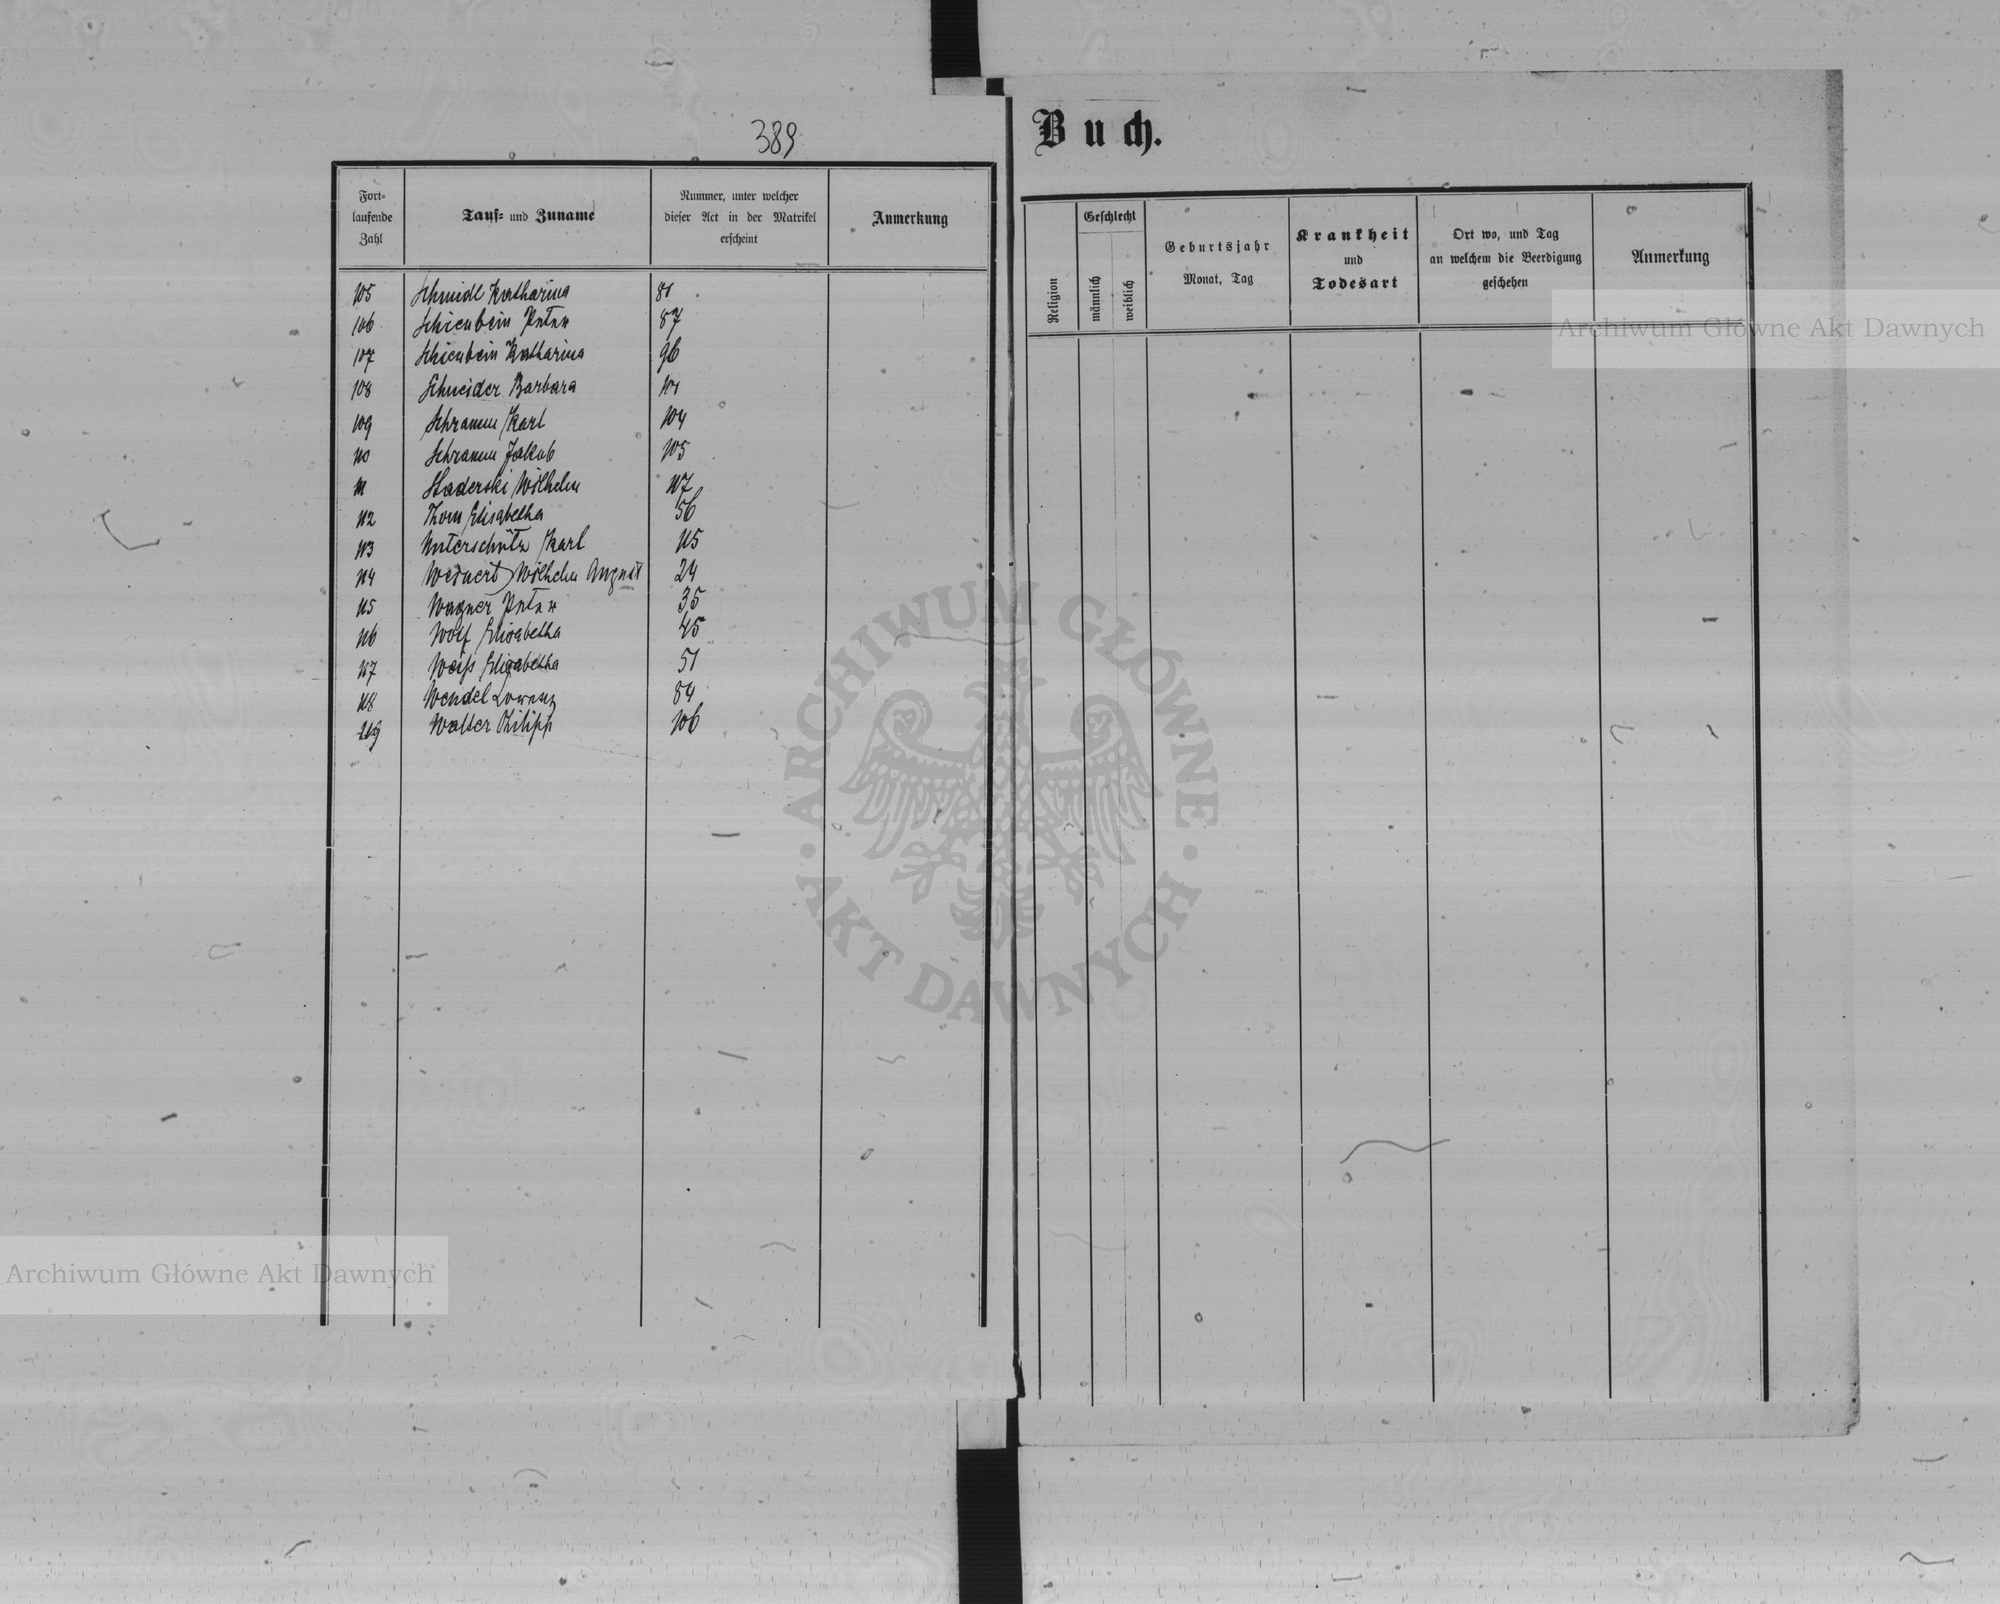 389
Fort-
laufende
Zahl
Tauf- und Zuname
Nummer, unter welcher
dieser Act in der Matrikel
erscheint
Anmerkung
105 Schmidt Katharina 81
106 Schienbein Peter 87
107 Schienbein Katharina 96
108 Schneider Barbara 101
109 Schramm Karl 104
110 Schramm Jakob 105
111 Staderski Wilhelm 107
112 Thom Elisabetha 56
113 Unterschütz Karl 115
114 Weinert Wilhelm August 24
115 Wagner Peter 35
116 Wolf Elisabetha 45
117 Weiß Elisabetha 51
118 Wendel Lorenz 84
119 Walter Philipp 106
Buch.
Religion
Geschlecht
männlich
weiblich
Geburtsjahr
Monat, Tag
Krankheit
und
Todesart
Ort wo, und Tag
an welchem die Beerdigung
geschehen
Anmerkung
Archiwum Główne Akt Dawnych
ARCHIWUM GŁÓWNE
AKT DAWNYCH
Archiwum Główne Akt Dawnych